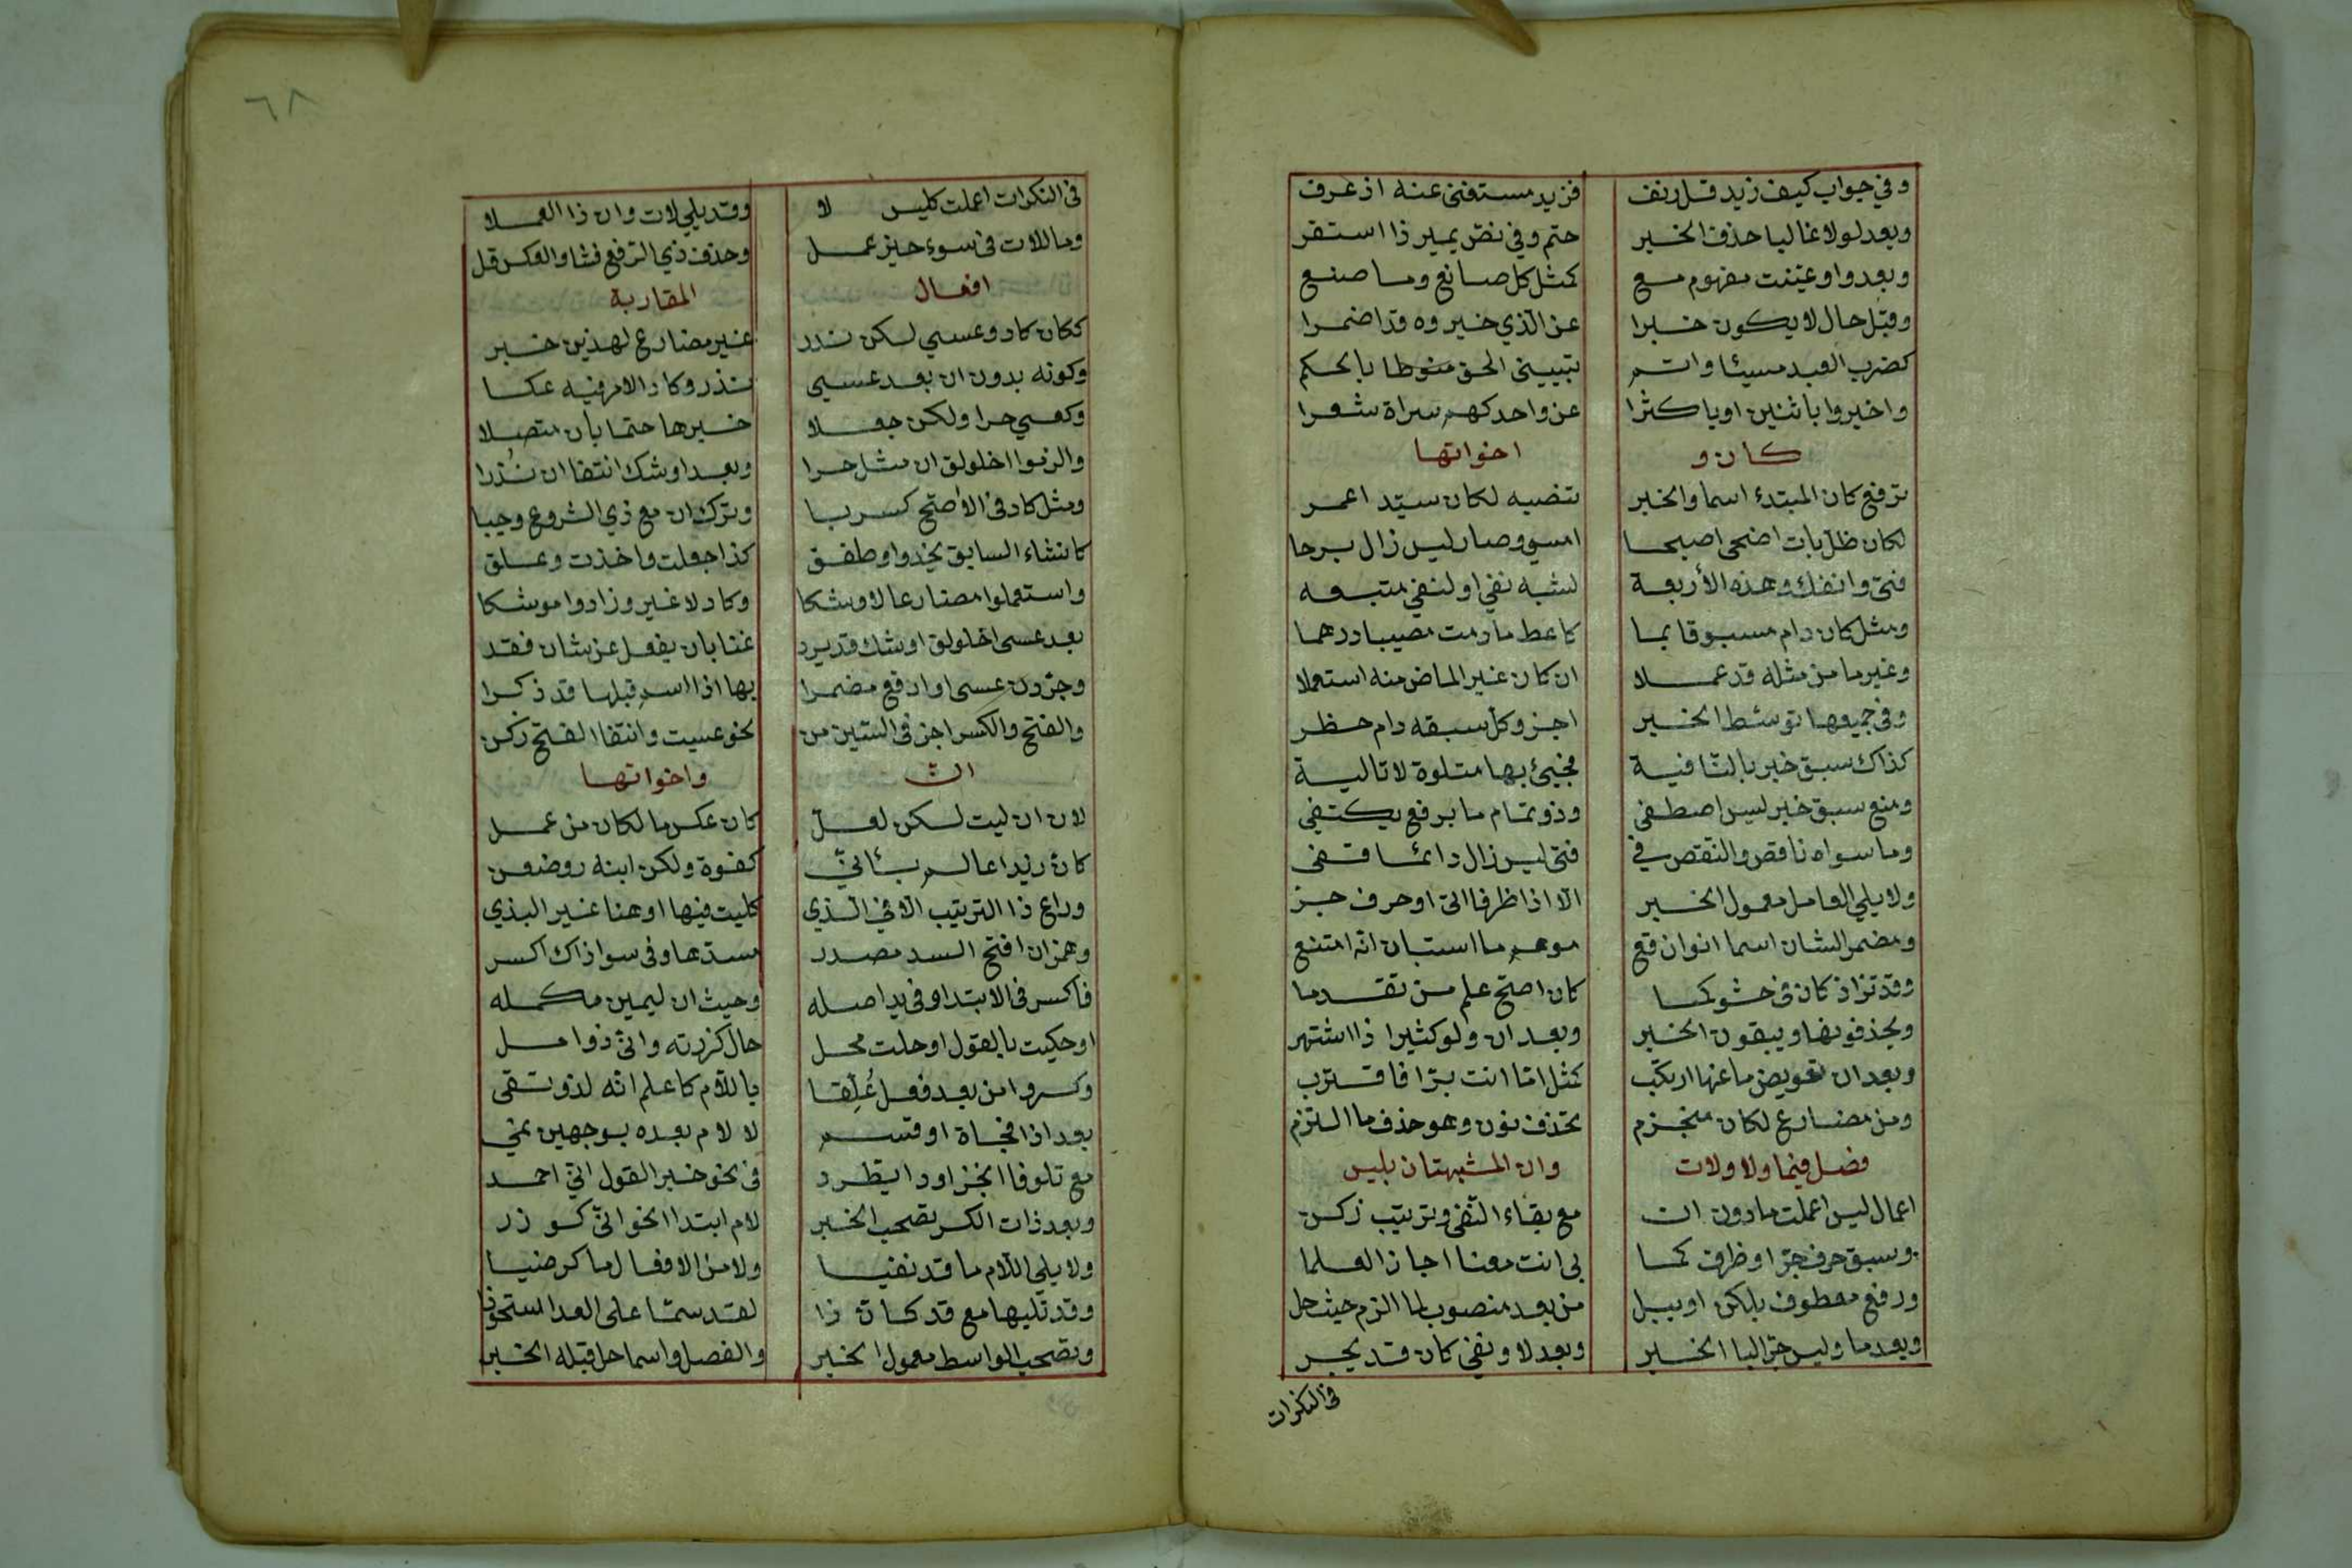 وفي جواب كيف زيد قل دنف فزيد مستغنى عنه اذ عرف
وبعد لولا غالبا حذف الخبر حتم وفي نص يمين ذا استقر
وبعد واو عينت مفهوم مع كمثل كل صانع وما صنع
وقبل حال لا يكون خبرا عن الذي خبره قد اضمرا
كضرب العبد مسيئا واتم تبييني الحق منوطا بالحكم
واخبروا باثنين او باكثرا عن واحد كهم سراة شعرا
كان و اخواتها
ترفع كان المبتدء اسما والخبر تنصبه لكان سيدا عمر
لكان ظل بات اضحى اصبحا امسى وصار ليس زال برحا
فتئ وانفك وهذه الأربعة لشبه نفي او لنفي متبعه
ومثل كان دام مسبوقا بما كاعط ما دمت مصيبا درهما
وغير ما من مثله قد عملا ان كان غير الماض منه استعملا
وفي جميعها توسط الخبر اجز وكل سبقه دام حظر
كذاك سبق خبر بالنافية فجيئ بها متلوة لا تالية
ومنع سبق خبر ليس اصطفى وذو تمام ما برفع يكتفي
وما سواه ناقص والنقص في فتئ ليس زال دائما قفى
ولا يلي العامل معمول الخبر الا اذا ظرفا اتى او حرف جر
ومضمر الشان اسما انوان قع موهم ما استبان انه امتنع
وقد تزاد كان في حشو كما كان اصح علم من تقدما
ويحذفونها ويبقون الخبر وبعد ان ولو كثيرا ذا اشتهر
وبعد ان تعويض ما عنها ارتكب كمثل اما انت برا فاقترب
ومن مضارع لكان منجزم تحذف نون وهو حذف ما التزم
فصل فيما ولا ولات وان المشبهتان بليس
اعمال ليس اعملت ما دون ان مع بقاء النفي وترتيب زكن
وسبق حرف جر او ظرف كما بي انت معنا اجاز العلما
ورفع معطوف بلكن او ببل من بعد منصوب بما الزم حيث حل
وبعد ما وليس جر البا الخبر وبعد لا ونفي كان قد يجر
في النكرات
٦٨
في النكرات اعملت كليس لا وقد يلي لات وان ذا العملا
وما للات في سوى حين عمل وحذف ذي الرفع فشا والعكس قل
افعال المقاربة
ككان كاد وعسى لكن ندر غير مضارع لهذين خبر
وكونه بدون ان بعد عسى نذر وكاد الامر فيه عكسا
وكعسى حرا ولكن جعلا خبرها حتما بأن متصلا
والزموا اخلولق ان مثل حرا وبعد اوشك انتفا ان نذرا
ومثل كاد في الأصح كربا وترك ان مع ذي الشروع وجبا
كانشاء السايق يحدوا وطفق كذا جعلت واخذت وعلق
واستعملوا مضارعا لاوشكا وكاد لا غير وزادوا موشكا
بعد عسى اخلولق اوشك قد يرد غنا بان يفعل عن ثان فقد
وجردن عسى او ارفع مضمرا بها اذا اسم قبلها قد ذكرا
والفتح والكسر اجز في السين من نحو عسيت وانتقا الفتح زكن
ان واخواتها
لان ان ليت لكن لعل كان عكس ما لكان من عمل
كان زيدا عالم باني كفوة ولكن ابنه ذو ضغن
وراع ذا الترتيب الا في الذي كليت فيها او هنا غير البذي
وهمز ان افتح لسد مصدر مسدها وفي سوا ذاك اكسر
فاكسر في الابتدا وفي بدا صله وحيث ان ليمين مكمله
او حكيت بالقول او حلت محل حال كزرته واني ذو امل
وكسروا من بعد فعل عُلِّقا باللام كاعلم انه لذو تقى
بعد اذا فجاة او قسم لا لام بعده بوجهين نمي
مع تلو فا الجزا وذا يطرد في نحو خير القول اني احمد
وبعد ذات الكسر تصحب الخبر لام ابتدا نحو اني لوزر
ولا يلي اللام ما قد نفيا ولا من الافعال ما كرضيا
وقد تليها مع قد كان ذا لقد سما على العدا مستحوذا
وتصحب الواسط معمول الخبر والفصل واسما حل قبله الخبر